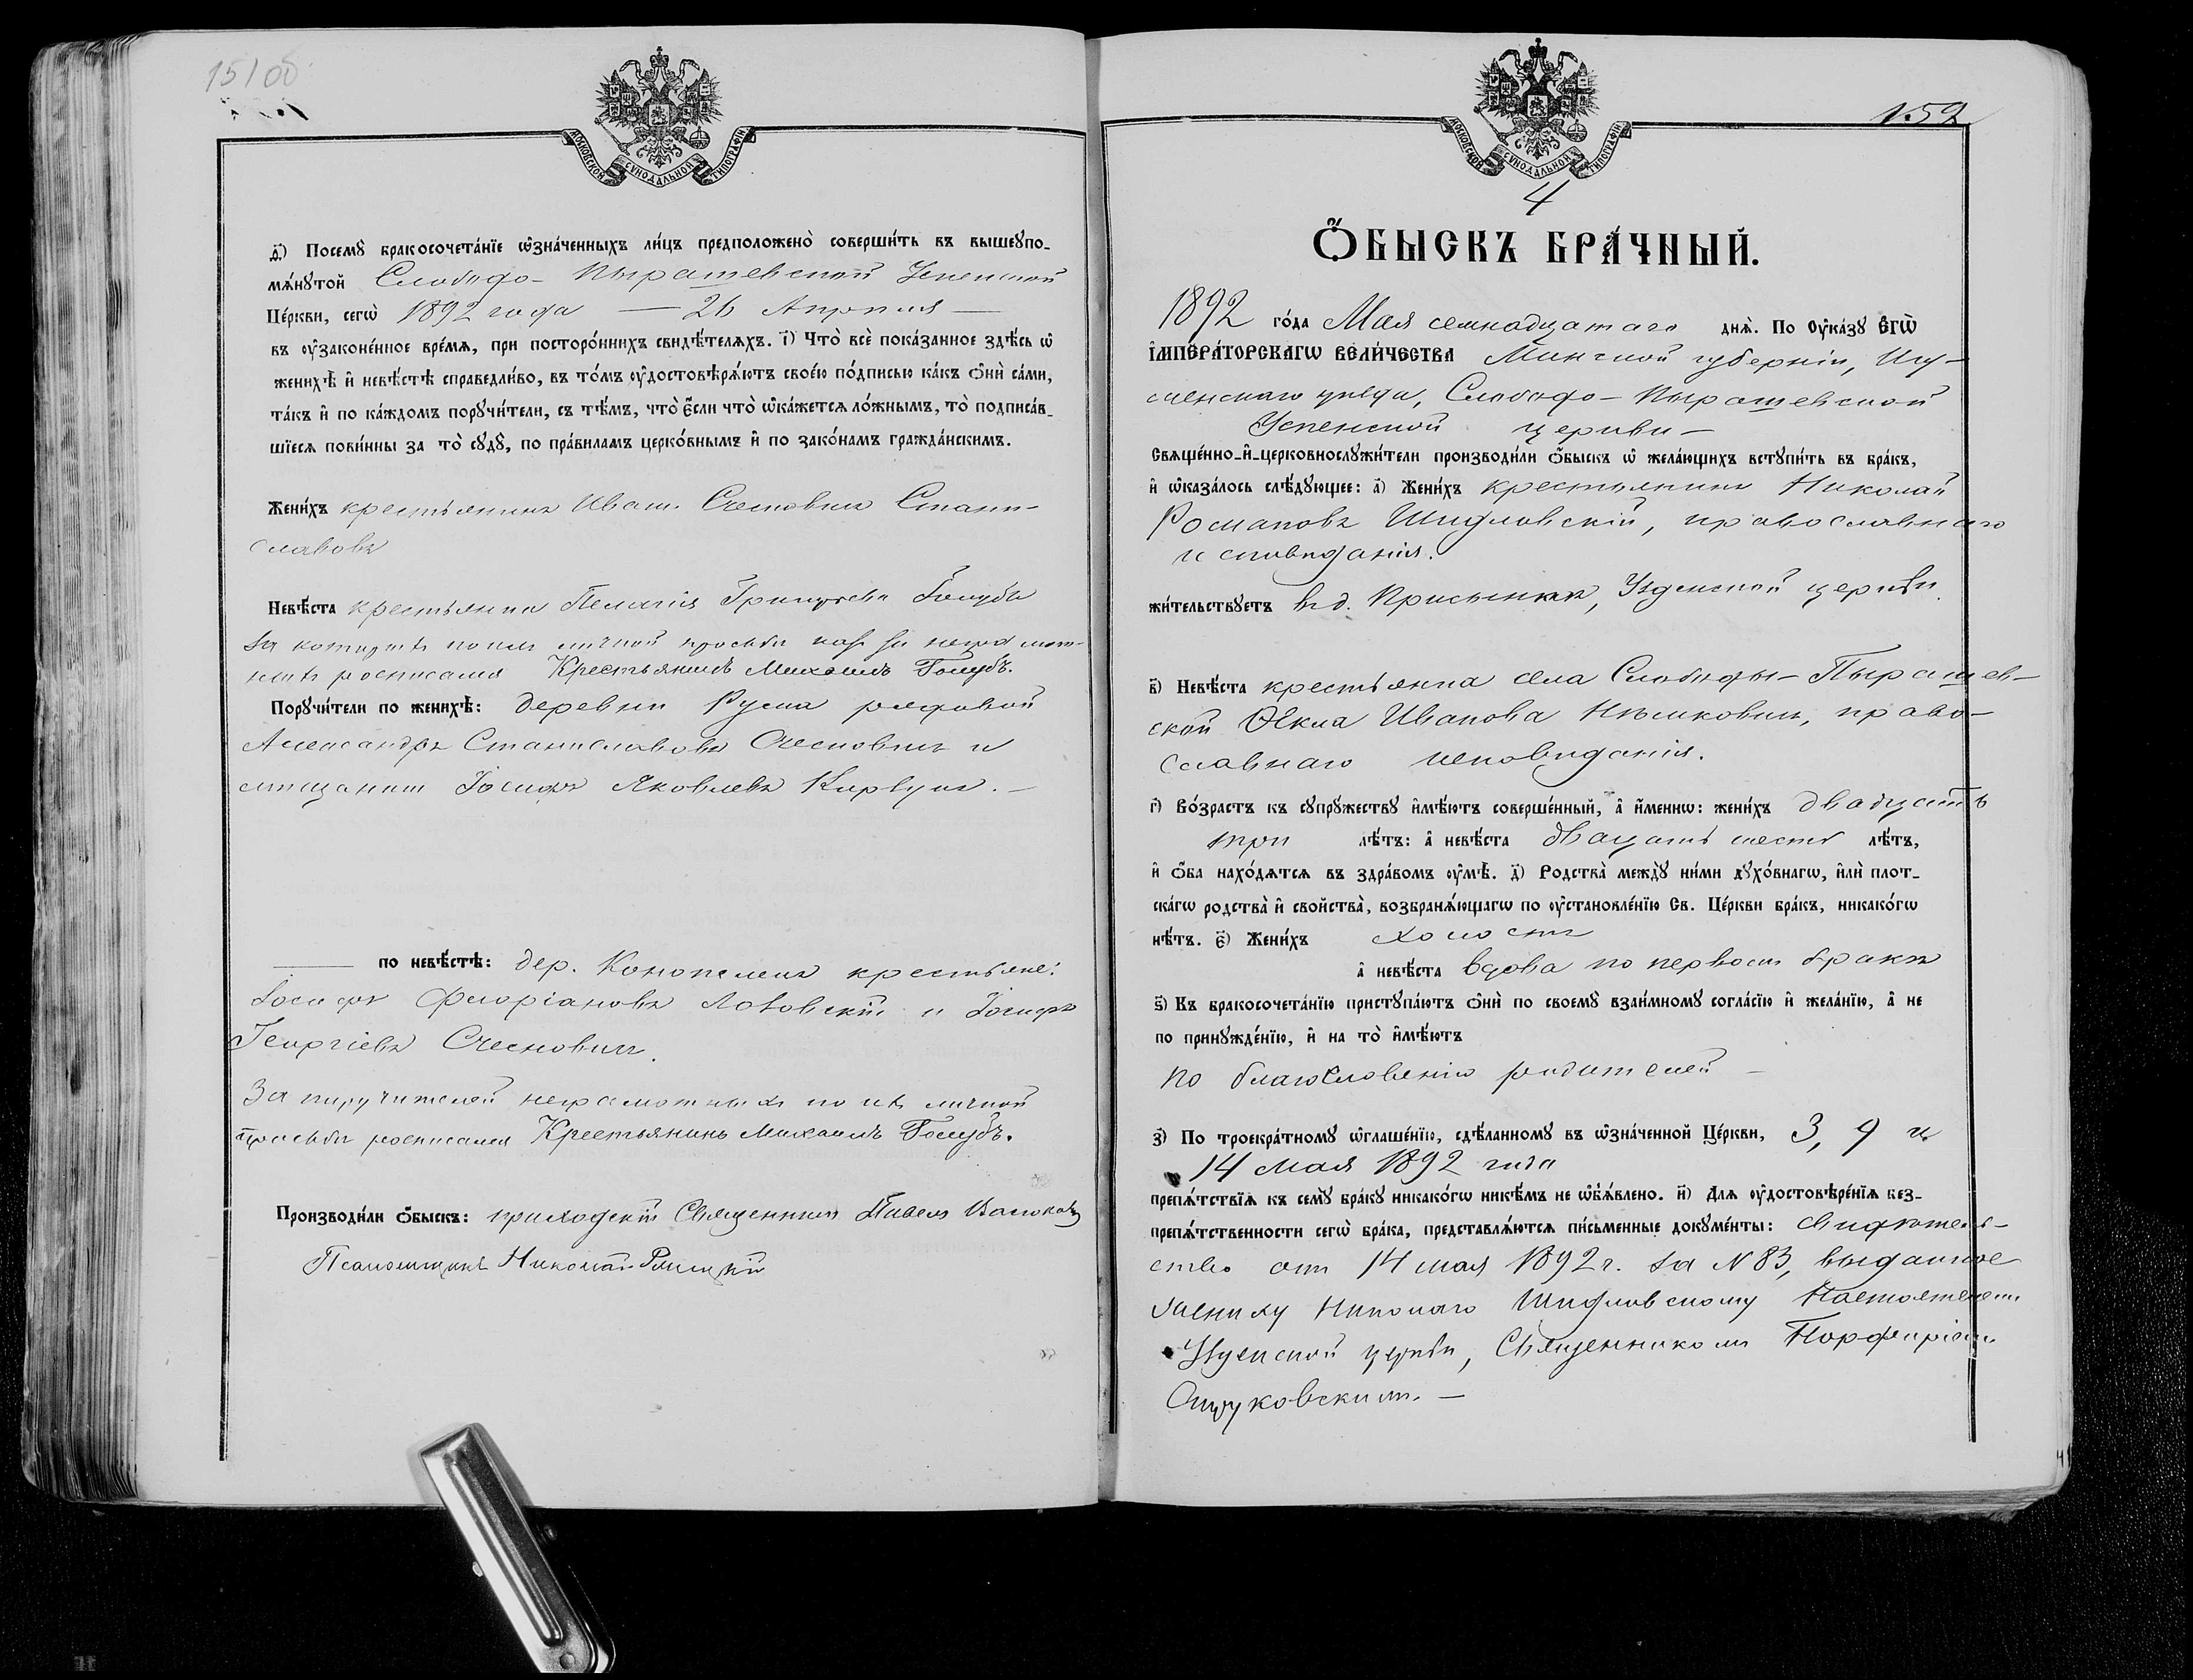 151об
МОСКОВСКОЙ СѴНОДАЛЬНОЙ ТИПОГРАФІИ
д҃) Посемꙋ̀ бракосочета́нїе ѡ҆зна́ченныхъ ли́цъ предположено̀ соверши́ть въ вышеꙋпо-
мѧ́нꙋтой Слободо-Пырашевской Успенской
Це́ркви, сегѡ̀ 1892 года — 26 Апреля —
въ ᲂу҆законе́нное вре́мѧ, при посторо́ннихъ свидѣ́телѧхъ. і҃) Что̀ всѐ пока́занное здѣ́сь ѡ҆
женихѣ̀ и҆ невѣ́стѣ справедли́во, въ то́мъ ᲂу҆достовѣрѧ́ютъ свое́ю по́дписью ка́къ ѻ҆нѝ са́ми,
та́къ и҆ по ка́ждомъ порꙋчи́тели, съ тѣ́мъ, что̀ є҆́сли что̀ ѡ҆ка́жетсѧ ло́жнымъ, то̀ подписа́в-
шїесѧ пови́нны за то̀ сꙋдꙋ̀, по пра́виламъ церко́внымъ и҆ по зако́намъ гражда́нскимъ.
Жени́хъ крестьянинъ Иванъ Счесновичъ Стани-
славовъ
Невѣ́ста крестьянка Пелагія Григорьева Голубъ
За которыхъ по ихъ личной просьбѣ какъ за неграмот-
ныхъ росписался Крестьянинъ Михаилъ Голубъ.
Порꙋчи́тели по женихѣ̀: деревни Русма рядовой
Александръ Станиславовъ Счесновичъ и
мѣщанинъ Іосифъ Яковлевъ
по невѣ́стѣ: дер. крестьяне:
Іосифъ Флоріановъ и Іосифъ
Георгіевъ Счесновичъ.
За поручителей неграмотныхъ по ихъ личной
просьбѣ росписался Крестьянинъ Михаилъ Голубъ.
Производи́ли ѻ҆́быскъ: приходскій Священникъ Павелъ
Псаломщикъ Николай
152
МОСКОВСКОЙ СѴНОДАЛЬНОЙ ТИПОГРАФІИ
4
Ѻ҆́БЫСКЪ БРА́ЧНЫЙ.
1892 го́да Мая семнадцатаго днѧ̀. По ᲂу҆ка́зꙋ Є҆ГѠ̀
І҆МПЕРА́ТОРСКАГѠ ВЕЛИ́ЧЕСТВА Минской губерніи, Игу-
менскаго уѣзда, Слободо-Пырашевской
Успенской церкви —
Свѧще́нно-и҆-церковнослꙋжи́тели производи́ли ѻ҆́быскъ ѡ҆ жела́ющихъ встꙋпи́ть въ бра́къ,
и҆ ѡ҆каза́лось слѣ́дꙋющее: а҃) Жени́хъ крестьянинъ Николай
Романовъ Шидловскій, православнаго
исповѣданія.
жи́тельствꙋетъ въ д. Присынкѣ, Узденской церкви.
в҃) Невѣ́ста крестьянка села Слободы-Пырашев-
ской Ѳекла Иванова Нѣмковичъ, право-
славнаго исповѣданія.
г҃) Во́зрастъ къ сꙋпрꙋ́жествꙋ и҆мѣ́ютъ соверше́нный, а҆ и҆́меннѡ: жени́хъ двадцать
три лѣ́тъ: а҆ невѣ́ста двацать шесть лѣ́тъ,
и҆ ѻ҆́ба нахо́дѧтсѧ въ здра́вомъ ᲂу҆мѣ̀. д҃) Родства̀ междꙋ̀ ни́ми дꙋхо́внагѡ, и҆лѝ плот-
ска́гѡ родства̀ и҆ свойства̀, возбранѧ́ющагѡ по ᲂу҆становле́нїю Св. Це́ркви бра́къ, никако́гѡ
нѣ́тъ. є҃) Жени́хъ холостъ
а҆ невѣ́ста вдова по первомъ бракѣ
ѕ҃) Къ бракосочета́нїю пристꙋпа́ютъ ѻ҆нѝ по своемꙋ̀ взаи́мномꙋ согла́сїю и҆ жела́нїю, а҆ не
по принꙋжде́нїю, и҆ на то̀ и҆мѣ́ютъ
по благословенію родителей —
з҃) По троекра́тномꙋ ѡ҆глаше́нїю, сдѣ́ланномꙋ въ ѡ҆зна́ченной Це́ркви, 3, 9 и
14 мая 1892 года
препѧ́тствїѧ къ семꙋ̀ бра́кꙋ никако́гѡ никѣ́мъ не ѡ҆б̾ѧ́влено. и҃) Длѧ ᲂу҆достовѣре́нїѧ без-
препѧ́тственности сегѡ̀ бра́ка, представлѧ́ютсѧ пи́сьменные докꙋме́нты: свидѣтель-
ство отъ 14 мая 1892 г. за № 83, выданное
жениху Николаю Шидловскому Настоятелемъ
Узденской церкви, Священникомъ Порфиріемъ